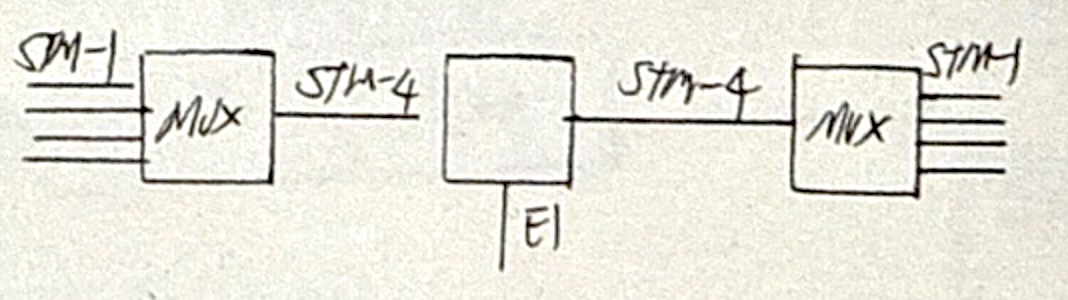 STM-1
MUX
STM-4
E1
STM-4
MUX
STM-1